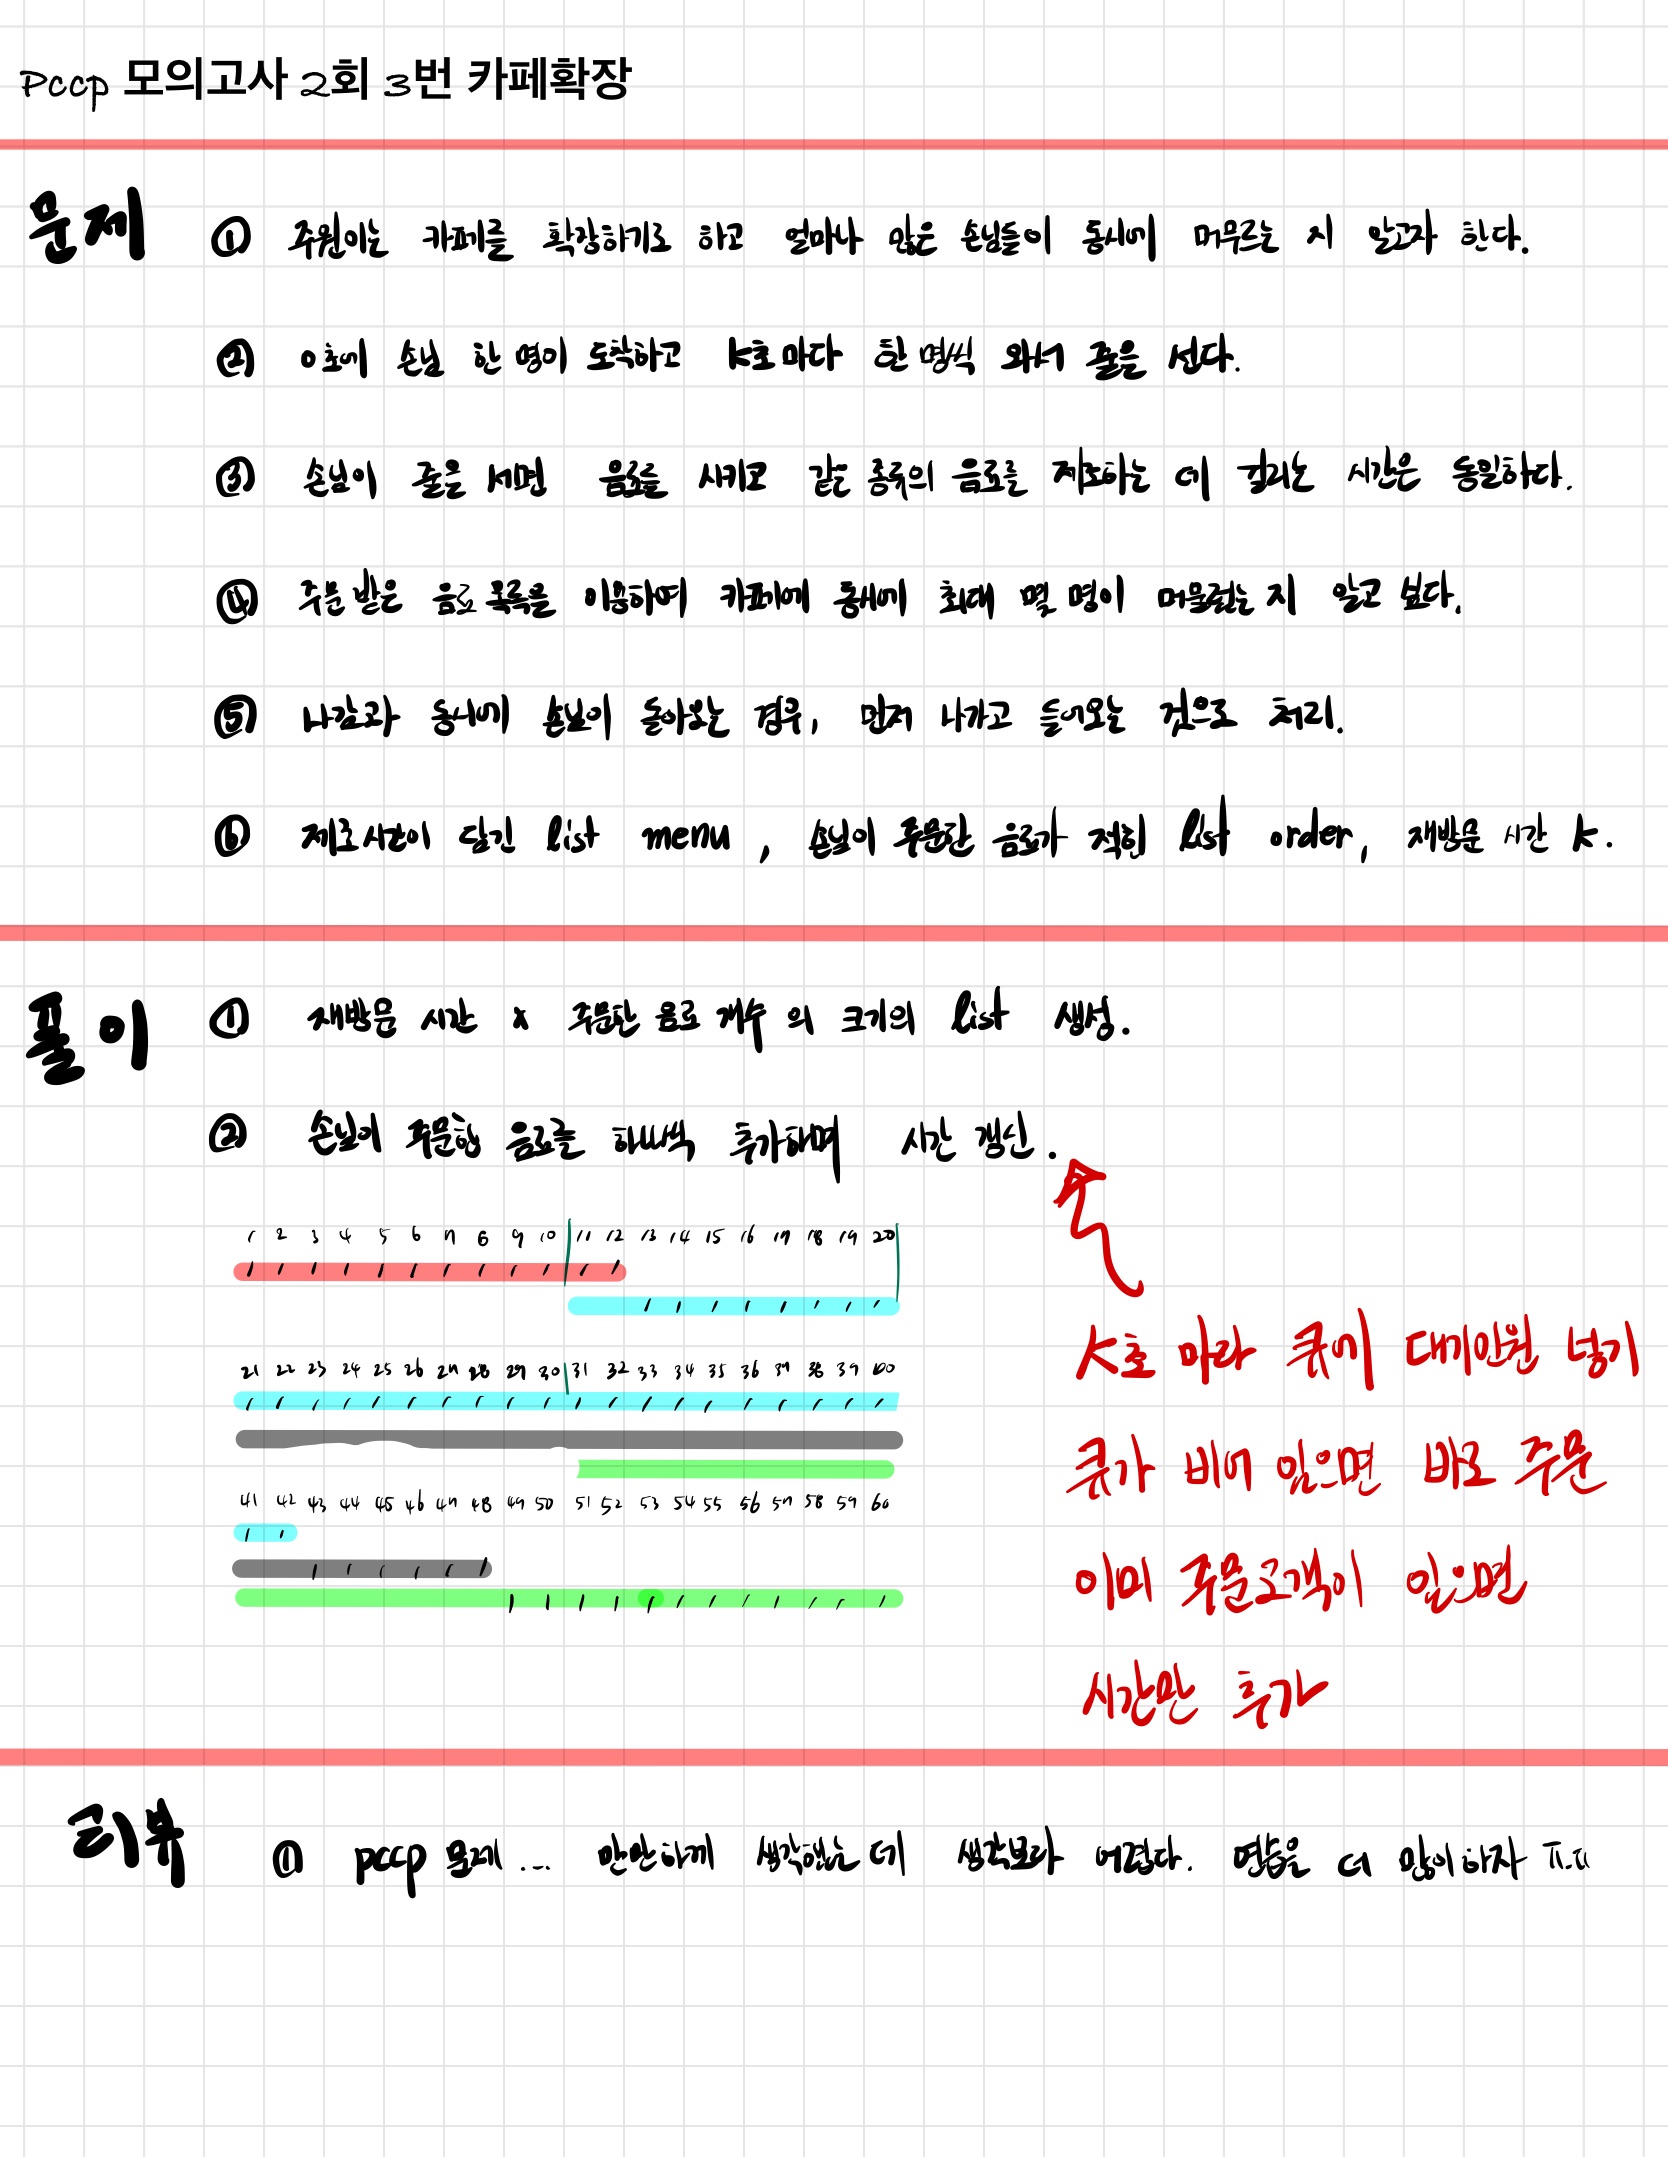 Pccp 모의고사 2회 3번 카페확장
문제
① 주원이는 카페를 확장하기로 하고 얼마나 많은 손님들이 동시에 머무르는 지 알고자 한다.
② 0초에 손님 한 명이 도착하고 K초 마다 한 명씩 와서 줄을 선다.
③ 손님이 줄을 서면 음료를 시키고 같은 종류의 음료를 제조하는 데 걸리는 시간은 동일하다.
④ 주문 받은 음료 목록을 이용하여 카페에 동시에 최대 몇 명이 머물렀는 지 알고 싶다.
⑤ 나감과 동시에 손님이 들어오는 경우, 먼저 나가고 들어오는 것으로 처리.
⑥ 제조시간이 담긴 list menu, 손님이 주문한 음료가 적힌 list order, 재방문 시간 K.
풀이
① 재방문 시간 x 주문한 음료 개수 의 크기의 list 생성.
② 손님이 주문한 음료를 하나씩 추가하며 시간 갱신.
1 2 3 4 5 6 7 8 9 10 11 12 13 14 15 16 17 18 19 20
21 22 23 24 25 26 27 28 29 30 31 32 33 34 35 36 37 38 39 40
41 42 43 44 45 46 47 48 49 50 51 52 53 54 55 56 57 58 59 60
K초 마다 큐에 대기인원 넣기
큐가 비어 있으면 바로 주문
이미 주문고객이 있으면
시간만 추가
리뷰
① pccp 문제... 만만하게 생각했는데 생각보다 어렵다. 연습을 더 많이하자 ㅠ.ㅠ